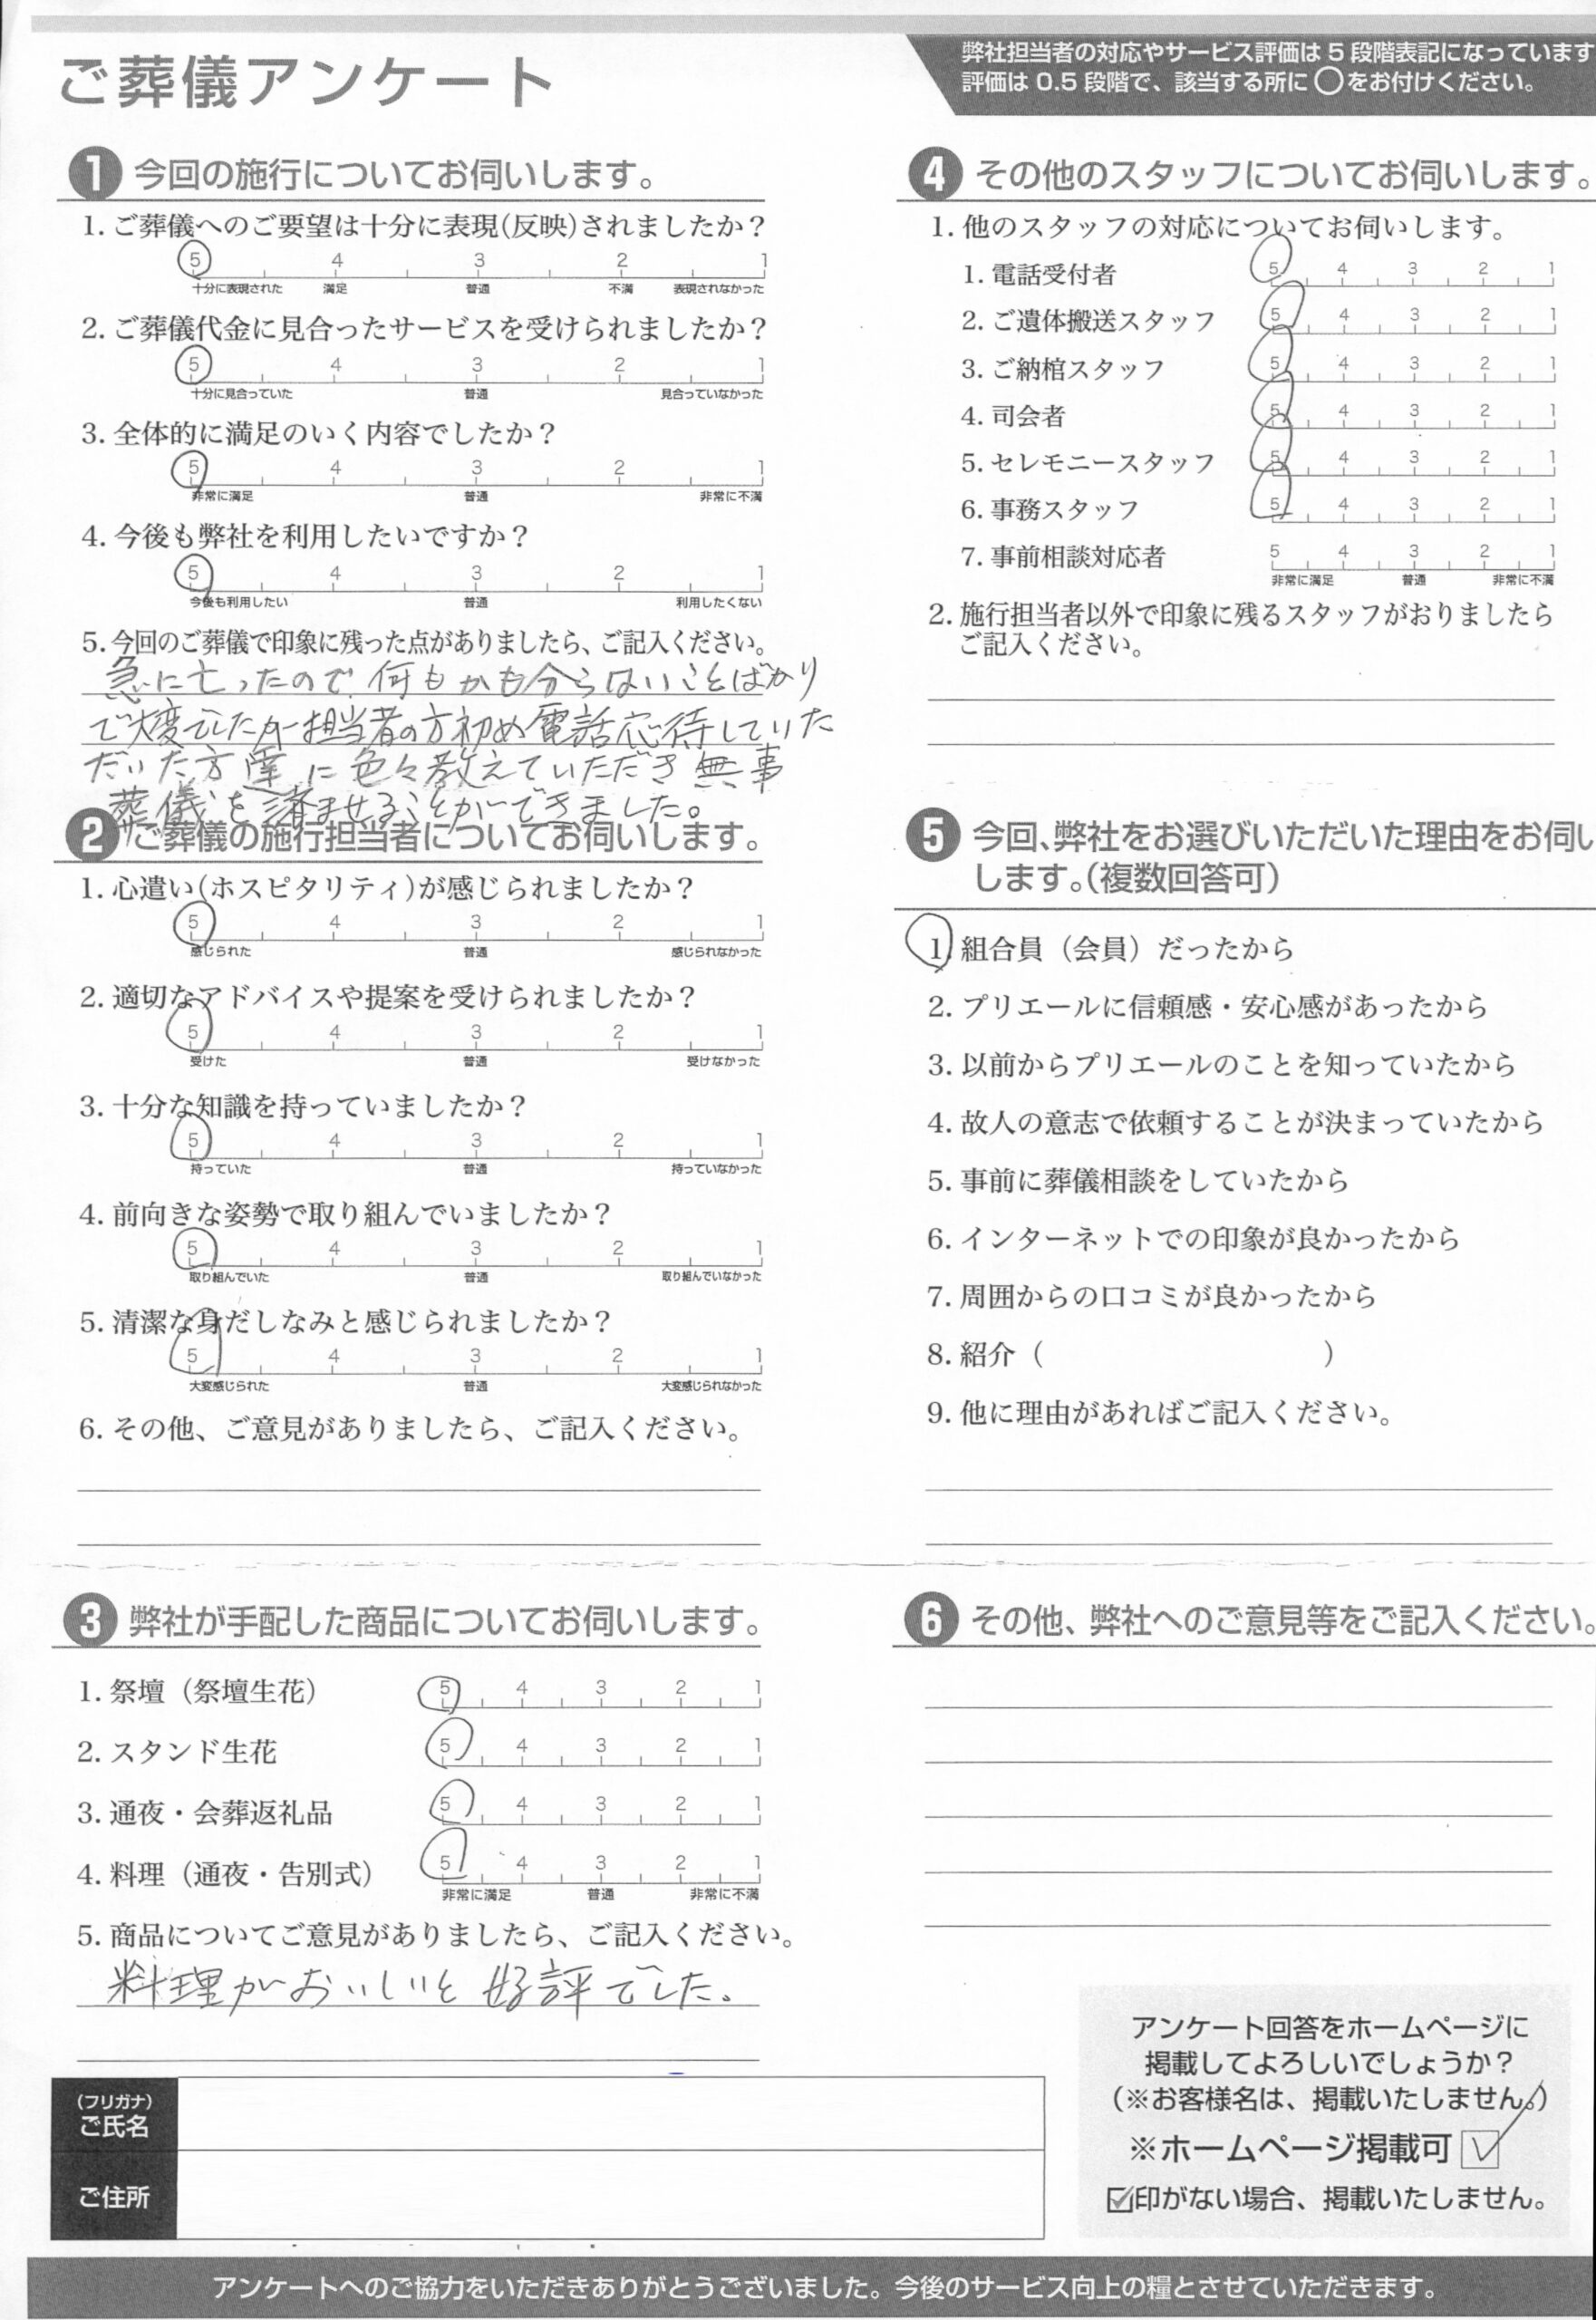 ご葬儀アンケート
弊社担当者の対応やサービス評価は 5 段階表記になっています
評価は 0.5 段階で、該当する所に ◯をお付けください。
1 今回の施行についてお伺いします。
1. ご葬儀へのご要望は十分に表現(反映)されましたか？
5 4 3 2 1
十分に表現された 満足 普通 不満 表現されなかった
2. ご葬儀代金に見合ったサービスを受けられましたか？
5 4 3 2 1
十分に見合っていた 普通 見合っていなかった
3. 全体的に満足のいく内容でしたか？
5 4 3 2 1
非常に満足 普通 非常に不満
4. 今後も弊社を利用したいですか？
5 4 3 2 1
今後も利用したい 普通 利用したくない
5. 今回のご葬儀で印象に残った点がありましたら、ご記入ください。
急に亡ったので何もかも分らないことばかり
で大変でしたが担当者の方初め電話応待していた
だいた方達に色々教えていただき無事
葬儀を済ませることができました。
2 ご葬儀の施行担当者についてお伺いします。
1. 心遣い(ホスピタリティ)が感じられましたか？
5 4 3 2 1
感じられた 普通 感じられなかった
2. 適切なアドバイスや提案を受けられましたか？
5 4 3 2 1
受けた 普通 受けなかった
3. 十分な知識を持っていましたか？
5 4 3 2 1
持っていた 普通 持っていなかった
4. 前向きな姿勢で取り組んでいましたか？
5 4 3 2 1
取り組んでいた 普通 取り組んでいなかった
5. 清潔な身だしなみと感じられましたか？
5 4 3 2 1
大変感じられた 普通 大変感じられなかった
6. その他、ご意見がありましたら、ご記入ください。
3 弊社が手配した商品についてお伺いします。
1. 祭壇（祭壇生花） 5 4 3 2 1
2. スタンド生花 5 4 3 2 1
3. 通夜・会葬返礼品 5 4 3 2 1
4. 料理（通夜・告別式） 5 4 3 2 1
非常に満足 普通 非常に不満
5. 商品についてご意見がありましたら、ご記入ください。
料理がおいしいと好評でした。
4 その他のスタッフについてお伺いします。
1. 他のスタッフの対応についてお伺いします。
1. 電話受付者 5 4 3 2 1
2. ご遺体搬送スタッフ 5 4 3 2 1
3. ご納棺スタッフ 5 4 3 2 1
4. 司会者 5 4 3 2 1
5. セレモニースタッフ 5 4 3 2 1
6. 事務スタッフ 5 4 3 2 1
7. 事前相談対応者 5 4 3 2 1
非常に満足 普通 非常に不満
2. 施行担当者以外で印象に残るスタッフがおりましたら
ご記入ください。
5 今回、弊社をお選びいただいた理由をお伺い
します。（複数回答可）
1. 組合員（会員）だったから
2. プリエールに信頼感・安心感があったから
3. 以前からプリエールのことを知っていたから
4. 故人の意志で依頼することが決まっていたから
5. 事前に葬儀相談をしていたから
6. インターネットでの印象が良かったから
7. 周囲からの口コミが良かったから
8. 紹介（ ）
9. 他に理由があればご記入ください。
6 その他、弊社へのご意見等をご記入ください。
アンケート回答をホームページに
掲載してよろしいでしょうか？
（※お客様名は、掲載いたしません。）
※ホームページ掲載可 ☑
☑印がない場合、掲載いたしません。
（フリガナ）
ご氏名
ご住所
アンケートへのご協力をいただきありがとうございました。今後のサービス向上の糧とさせていただきます。